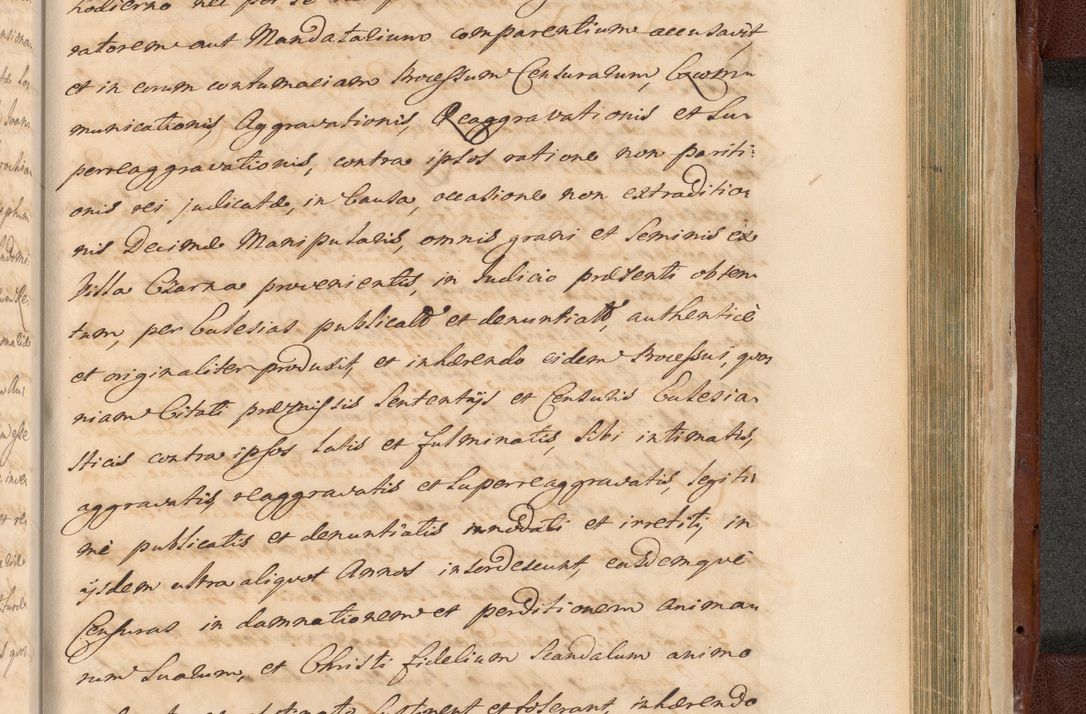 hodierno nec per se nec
ratorem aut Mandatarium comparentium accusavit
et in eorum contumaciam Processum Censurarum, Excom-
municationis, Aggravationis, Reaggravationis et Su-
perreaggravationis, contra ipsos ratione non pariti-
onis rei judicatæ, in Causa, occasione non extraditio-
nis Decimæ Manipularis, omnis grani et Seminis ex
Villa Czarna provenientis, in Judicio præsenti obten-
tum, per Eccclesias publicatũ et denuntiatũ, authenticè
et originaliter produxit, et inhærendo eidem Processui, quo-
niam Citati præmissis Sententijs et Censuris Ecclesia-
sticis contra ipsos latis et fulminatis, sibi intimatis,
aggravatis, reaggravatis et superreaggravatis, legiti-
mè publicatis et denuntiatis innodati et irretiti, in
ijsdem ultra aliquot Annos insordescunt, easdemquè
Censuras in damnationem et perditionem anima-
rum Suarum, et Christi fidelium Scandalum animo
Sustinent et tolerant, inhærendo